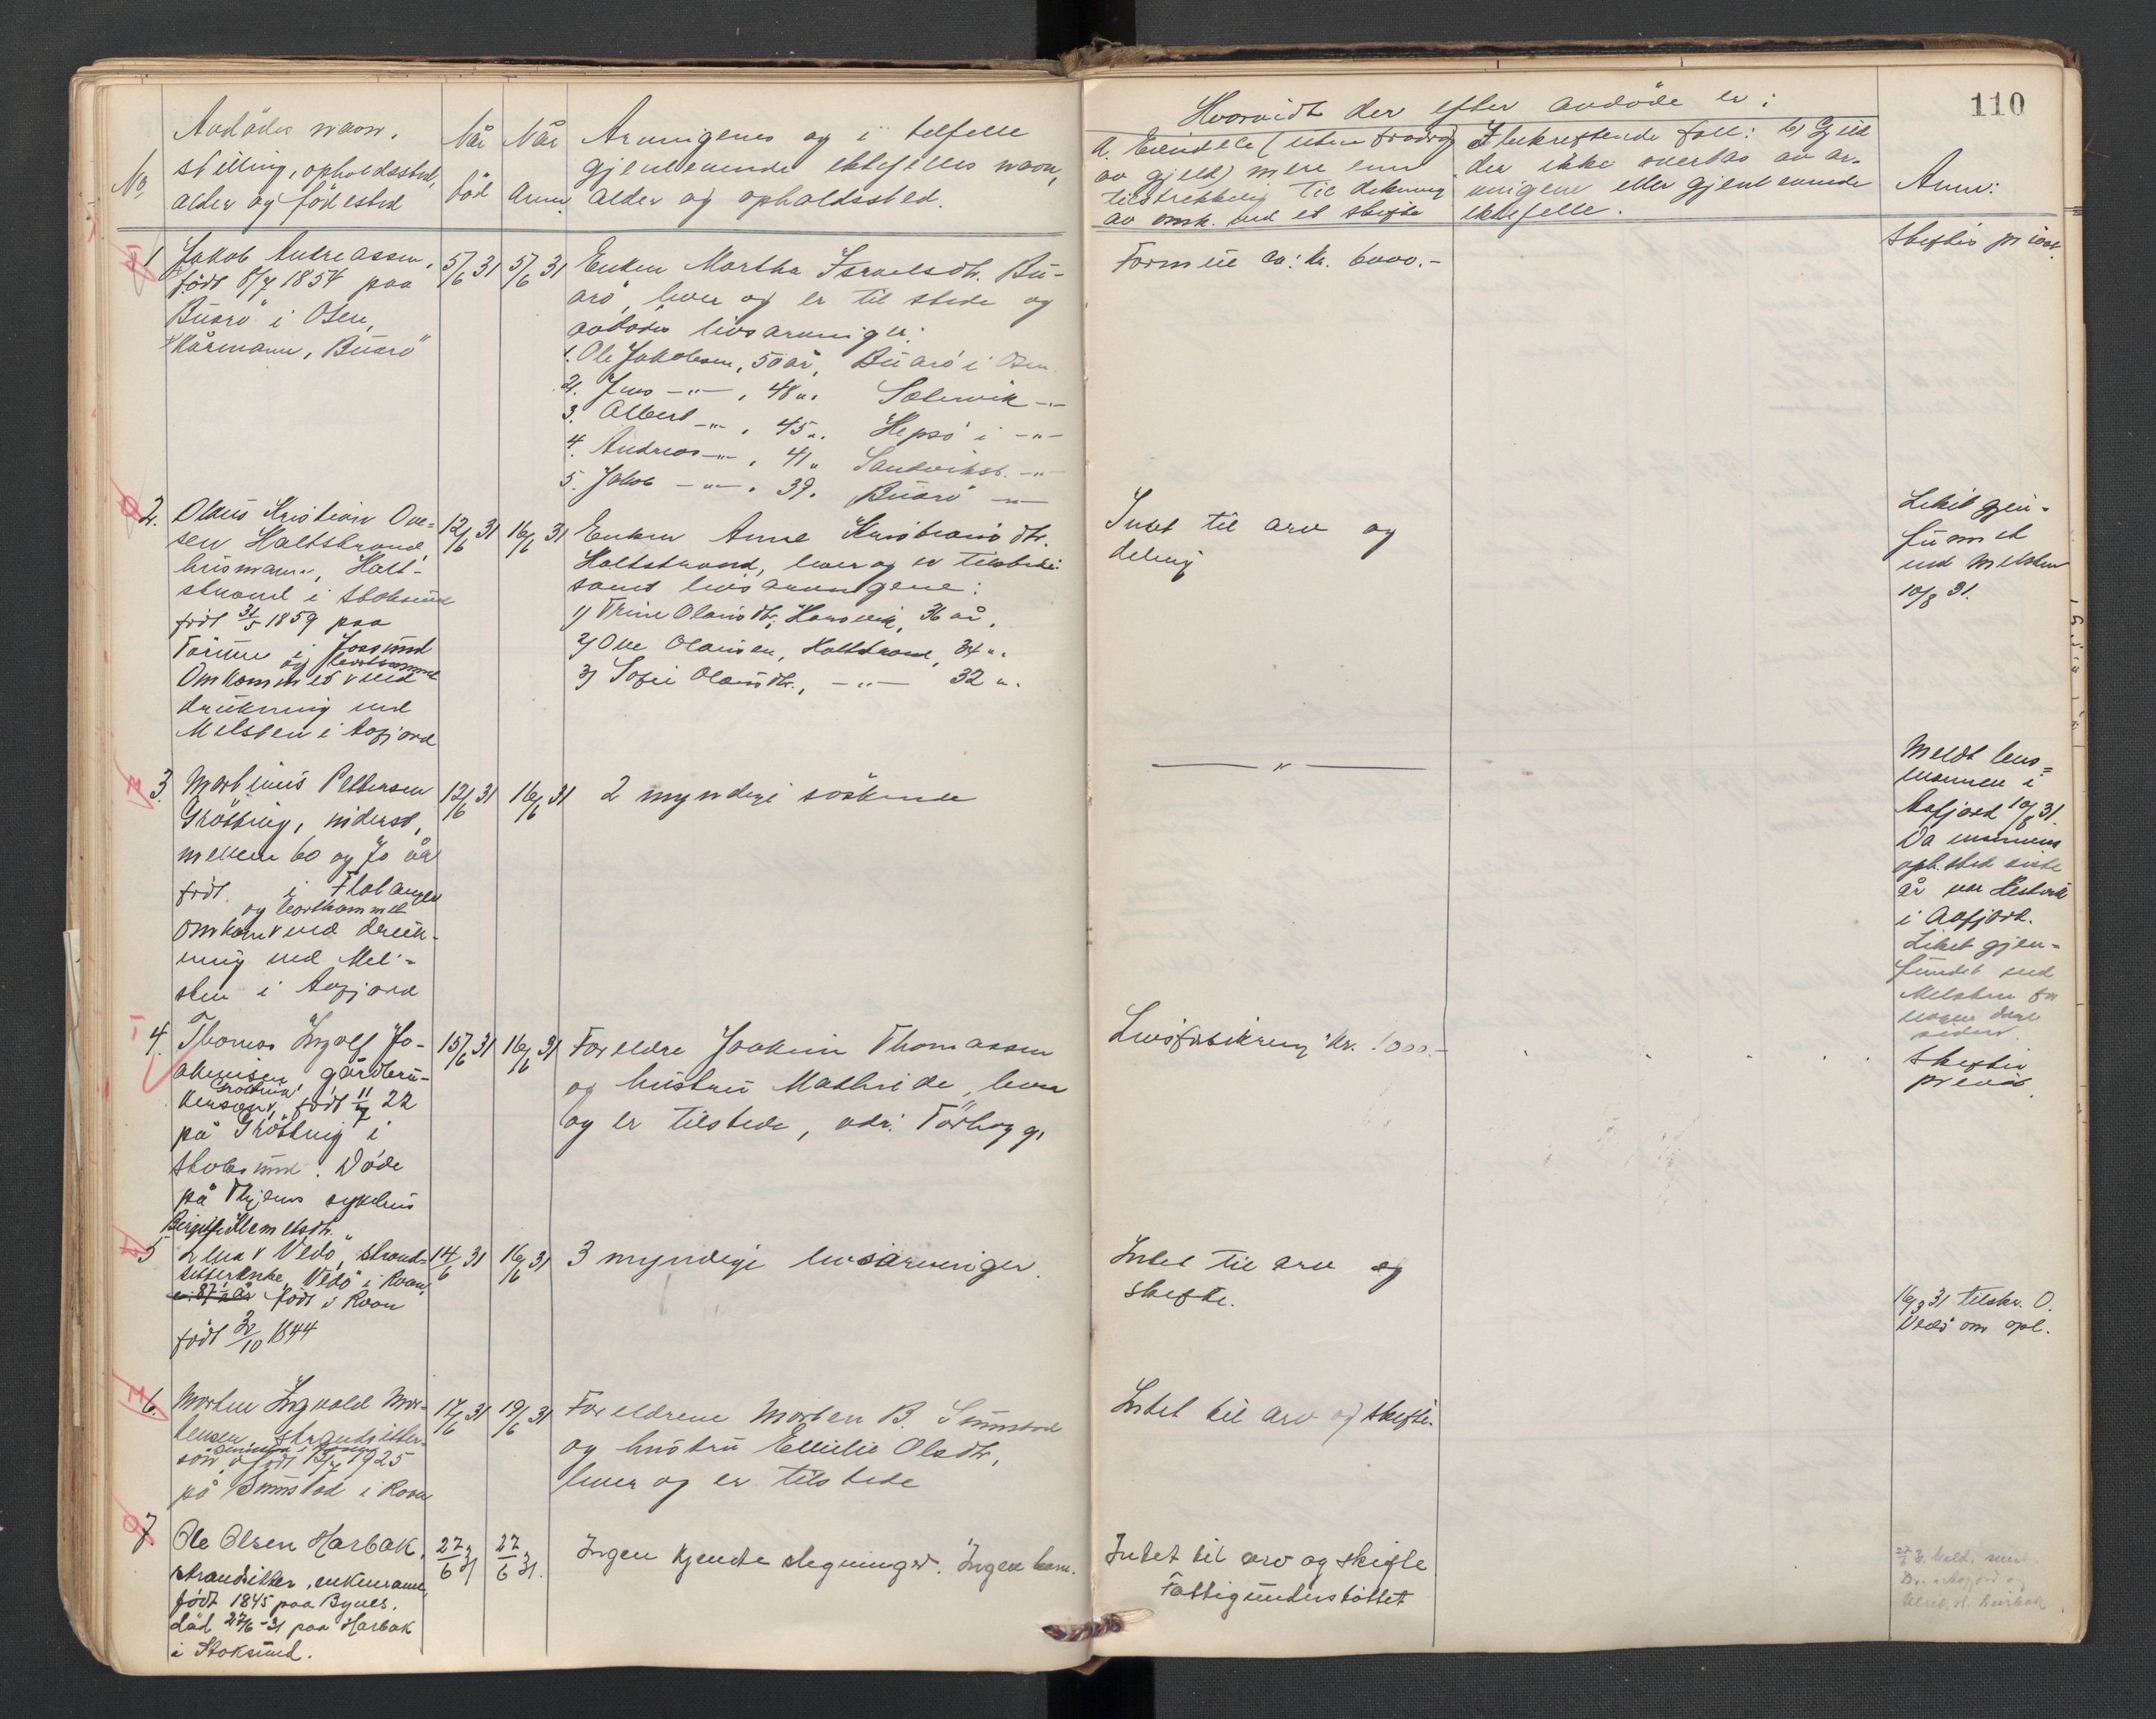 110
No.
Avdödes navn,
stilling, opholdssted,
alder og födested
Når
död
Når
Anm.
Arvingenes og i tilfelle
gjenlevende ektefelles navn,
alder og opholdssted.
Hvorvidt der efter avdöde er:
a. Eiendele (uten fradrag
av gjeld) mere enn
tilstrekkelig til dekning
av omk. ved et skifte
I bekreftende fall: b) Gjeld
der ikke overtas av ar-
vingene eller gjenlevende
ektefelle.
Anm:
1
Jakob Andreassen,
födt 8/7 1854 paa
Buarö i Osen,
Kårmann, Buarö
5/6 31
5/6 31
Enken Martha Israelsdtr. Bu-
arö, lever og er til stede og
avdödes livsarvinger:
1. Ole Jakobsen, 50 år, Buarö i Osen
2. Jens -"- , 48 ". Sætervik -"-
3. Albert -"- , 45 ". Hepsö i -"-
4. Andreas -"- , 41 " Sandviksb. -"-
5. Jakob -"- , 39. Buarö -"-
Formue ca: kr. 6000.-
Skiftes privat.
2.
Olaus Kristian Ove-
sen Holtstrand,
husmann, Holt-
strand i Stoksund
födt 31/5 1859 paa
i Jossund
og bortkommet
Omkommet v ved
drukning ved
Melsten i Aafjord
12/6 31
16/6 31
Enken Anne Kristiansdtr.
Holtstrand, lever og er tilstede:
samt livsarvingene:
1) Trine Olausdtr. Hansvik, 36 år.
2) Ove Olausen, Holtstrand, 34 ".
3) Sofie Olausdtr., -"- 32 ".
Intet til arv og
deling
Liket gjen-
funnet
ved Melsten
10/8 31.
3.
Martinus Pettersen
Grötting, inderst,
mellem 60 og 70 år
födt i Flatanger
og bortkommet
Omkom v ved druk-
ning ved Mel-
sten i Aafjord
12/6 31
16/6 31
2 myndige söskende
— " —
Meldt lens-
mannen i
Aafjord 10/8 31.
Da mannens
oph.sted siste
år var
i Aafjord.
Liket gjen-
fundet ved
Melsten for
nogen dage
siden.
4.
Thomas Ingolf Jo-
akimsen gårdbru-
Gröttin
kersönv, födt 11/7 22
på Gröttnig i
Stoksund. Döde
på Thjems sykehus
15/6 31
16/6 31
Foreldre Joakim Thomassen
og hustru Mathilde, lever
og er tilstede, adr. Tørhogg,
Livsforsikring kr. 1000.-
Skiftes
privat.
5
Klemetsdtr.
v Vedö, strand-
sitterenke, Vedö i Roan,
87 år födt i Roan
födt 30/10 1844
14/6 31
16/6 31
3 myndige livsarvinger.
Intet til arv og
skifte.
16/9 31 tilskr. O.
Vedö om opl.
6.
Morten Ingvald Mor-
tensen, strandsitter-
sön v födt 13/4 1925
på Sumstad i Roan
17/6 31
19/6 31
Foreldrene Morten B. Sumstad
og hustru Emilie Olsdtr,
lever og er tilstede
Intet til arv og skifte.
7
Ole Olsen Harbak,
strandsitter, enkemann,
födt 1845 paa Bynes.
död 27/6-31 paa Harbak
i Stoksund.
27/6 31
27/6 31.
Ingen kjendte slegtninger. Ingen barn.
Intet til arv og skifte
Fattigunderstöttet